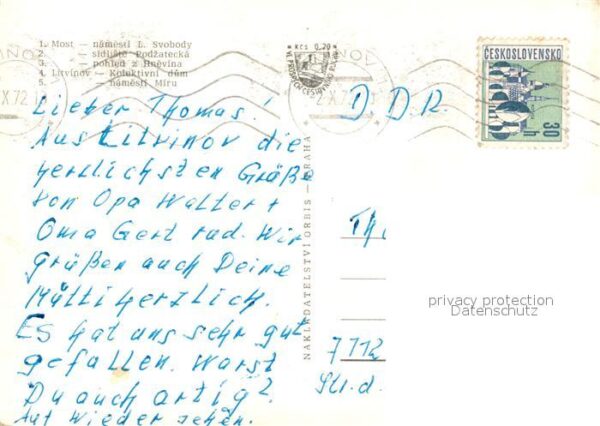 1. Most — náměstí L. Svobody
2. sídliště Podžatecká
3. pohled z Hněvína
4. Litvínov — Kolektivní dům
5. náměstí Míru
Kčs 0,20
ČESKOSLOVENSKO
30 h
-2.X.72
X.72
Lieber Thomas!
Aus Litvinov die
herzlichsten Grüße
von Opa Walter +
Oma Gertrud. Wir
grüßen auch Deine
Mutti herzlich.
Es hat uns sehr gut
gefallen. Warst
Du auch artig?
Auf Wiedersehen.
NAKLADATELSTVÍ ORBIS — PRAHA
DDR
Th
7112
Str. d.
privacy protection
Datenschutz